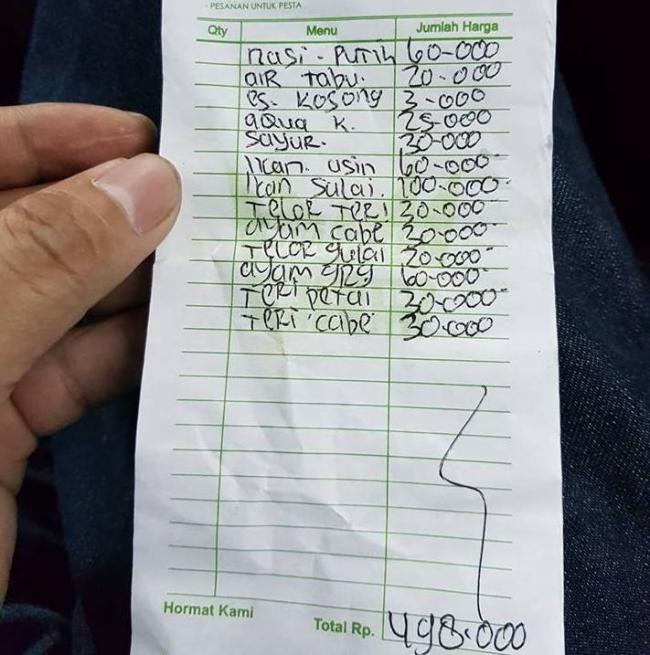 - PESANAN UNTUK PESTA
Qty Menu Jumlah Harga
nasi - putih 60-000
air tabu. 20.000
es. kosong 3-000
aqua k. 25-000
sayur. 30-000
Ikan. usin 60-000
Ikan Sulai. 100.000
Telor Teri 30-000
ayam cabe 30-000
Telor gulai 20-000
ayam grg 60-000
Teri petai 30-000
Teri cabe 30.000
Hormat Kami
Total Rp. 498.000